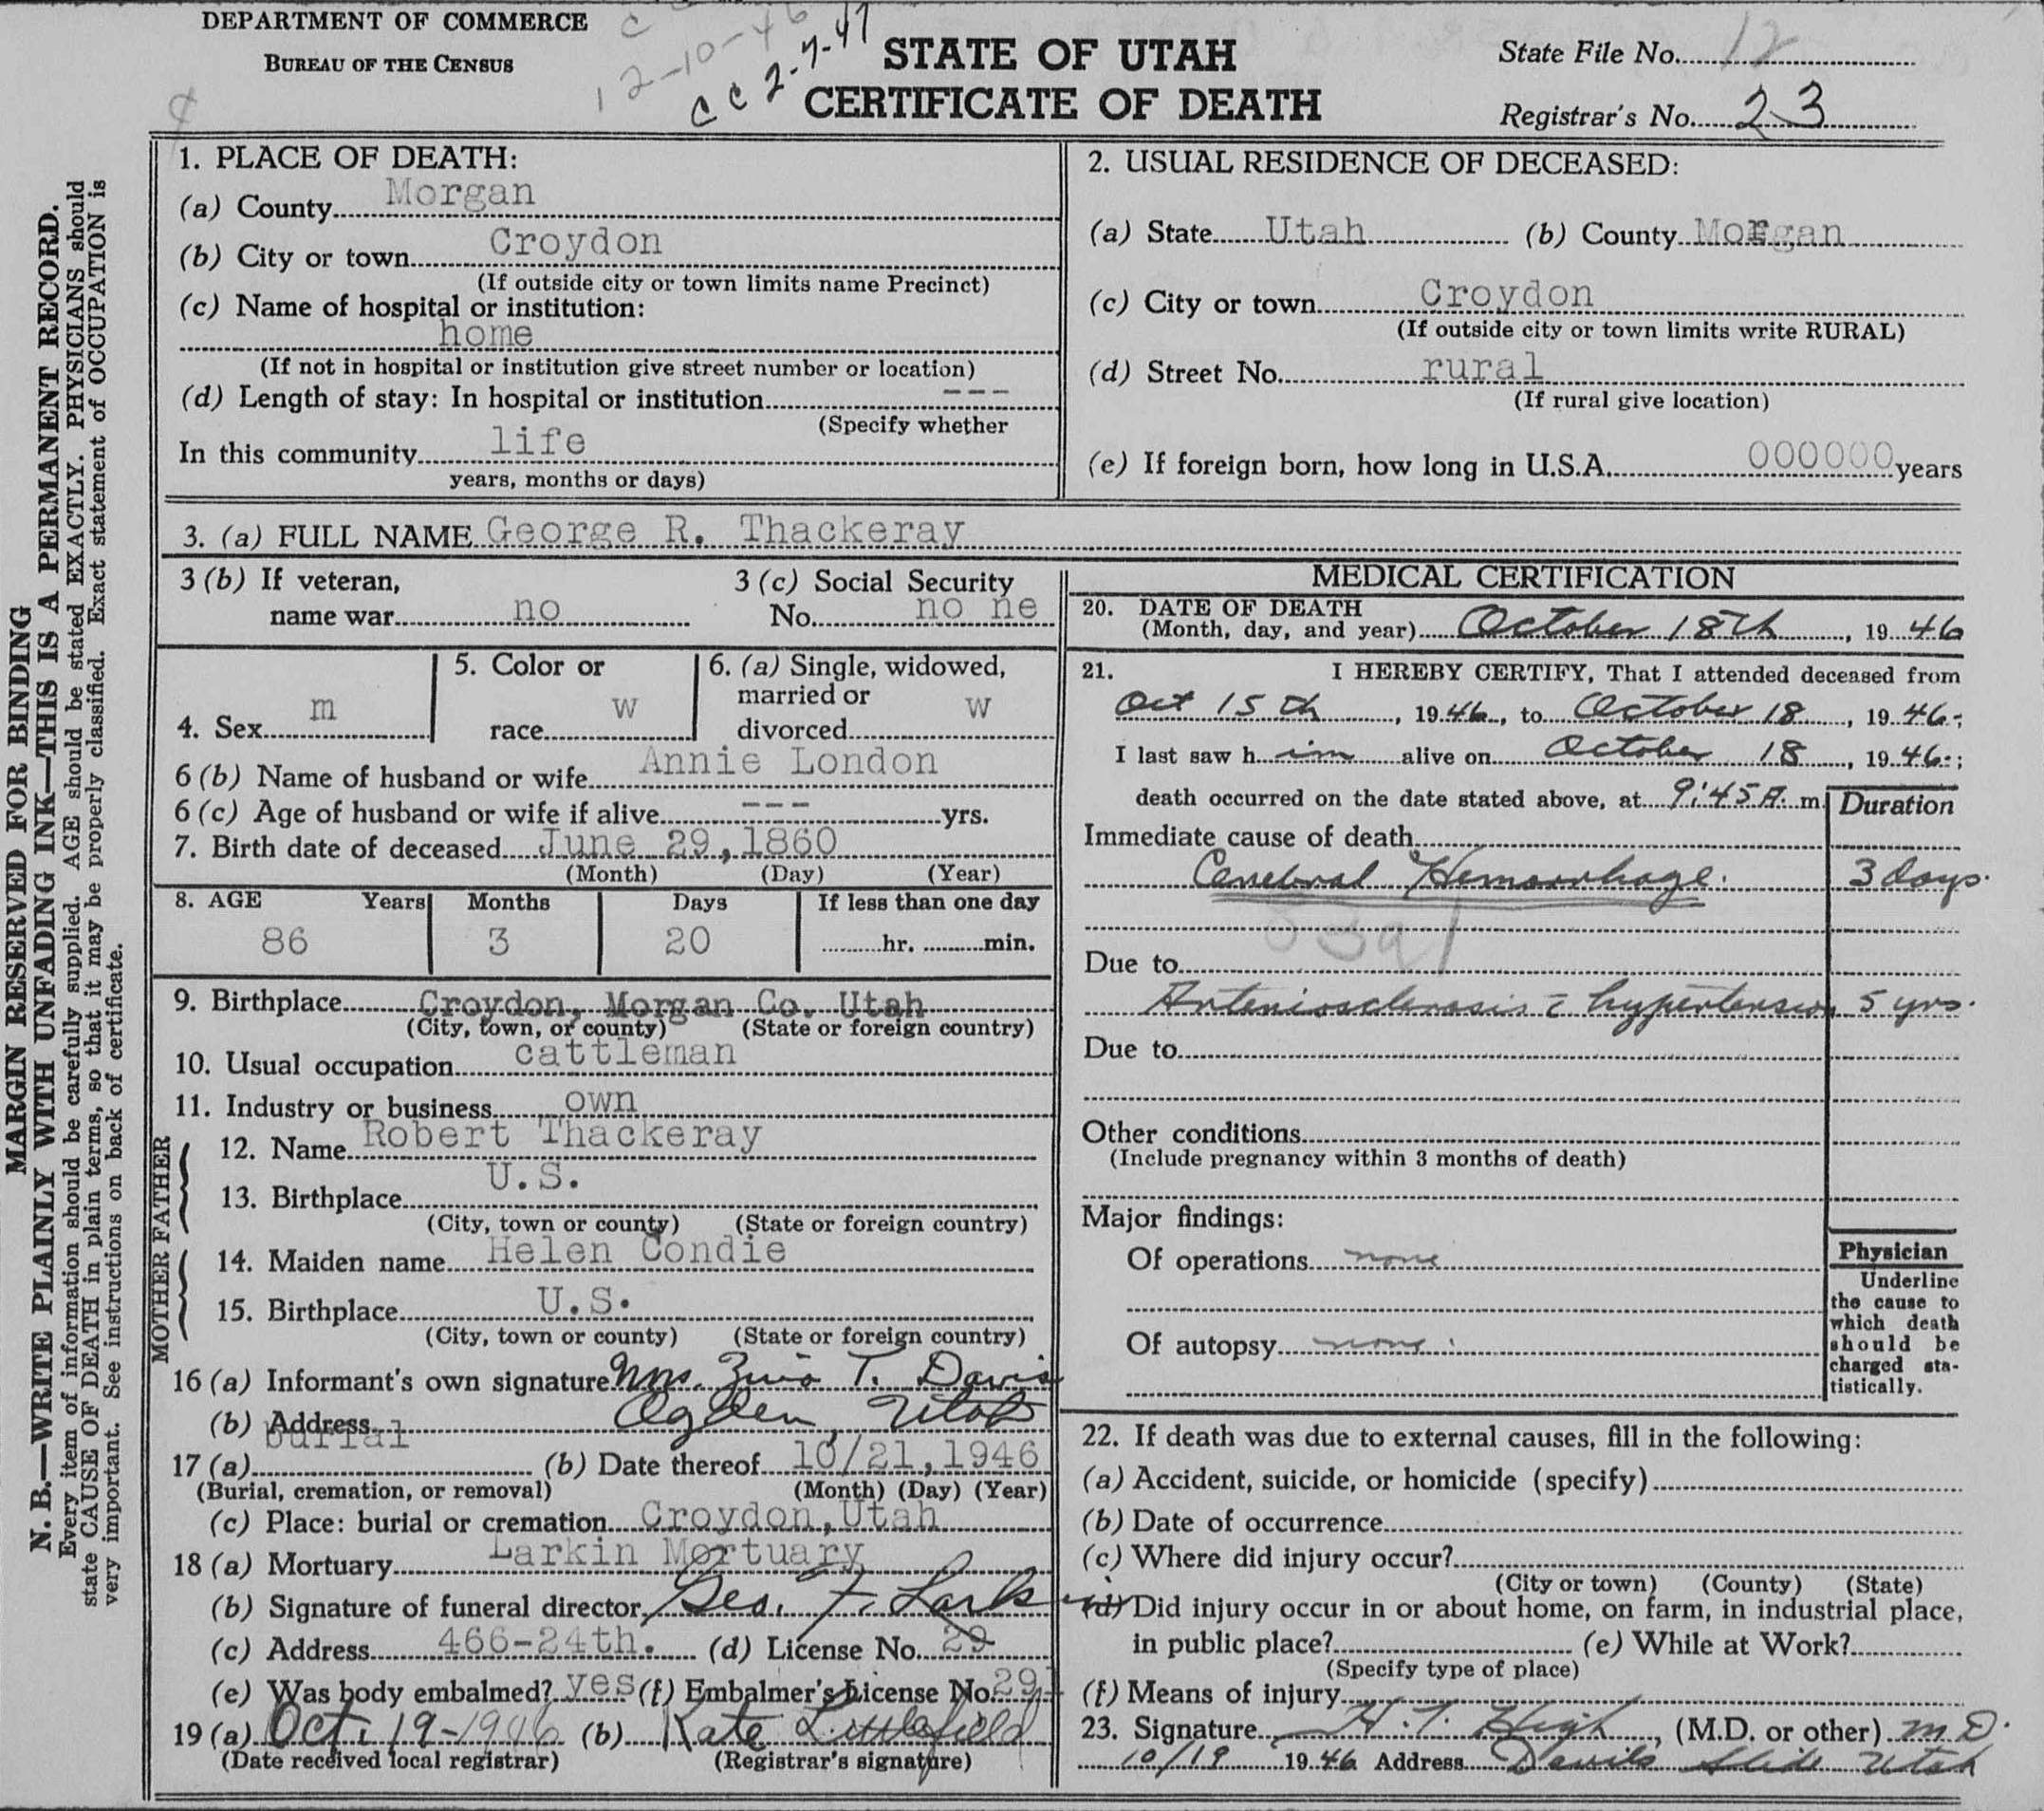 DEPARTMENT OF COMMERCE
BUREAU OF THE CENSUS
12-10-46
CC 2-7-47
STATE OF UTAH
CERTIFICATE OF DEATH
State File No. 12
Registrar's No. 23
MARGIN RESERVED FOR BINDING
N. B.—WRITE PLAINLY WITH UNFADING INK—THIS IS A PERMANENT RECORD.
Every item of information should be carefully supplied. AGE should be stated EXACTLY. PHYSICIANS should
state CAUSE OF DEATH in plain terms, so that it may be properly classified. Exact statement of OCCUPATION is
very important. See instructions on back of certificate.
1. PLACE OF DEATH:
(a) County Morgan
(b) City or town Croydon
(If outside city or town limits name Precinct)
(c) Name of hospital or institution:
home
(If not in hospital or institution give street number or location)
(d) Length of stay: In hospital or institution ---
(Specify whether
In this community life
years, months or days)
2. USUAL RESIDENCE OF DECEASED:
(a) State Utah (b) County Morgan
(c) City or town Croydon
(If outside city or town limits write RURAL)
(d) Street No. rural
(If rural give location)
(e) If foreign born, how long in U.S.A. 000000 years
3. (a) FULL NAME George R. Thackeray
3 (b) If veteran,
name war no
3 (c) Social Security
No. no ne
4. Sex m
5. Color or
race w
6. (a) Single, widowed,
married or
divorced w
6 (b) Name of husband or wife Annie London
6 (c) Age of husband or wife if alive --- yrs.
7. Birth date of deceased June 29, 1860
(Month) (Day) (Year)
8. AGE Years Months Days If less than one day
86 3 20 hr. min.
9. Birthplace Croydon, Morgan Co. Utah
(City, town, or county) (State or foreign country)
10. Usual occupation cattleman
11. Industry or business own
FATHER
12. Name Robert Thackeray
13. Birthplace U.S.
(City, town or county) (State or foreign country)
MOTHER
14. Maiden name Helen Condie
15. Birthplace U.S.
(City, town or county) (State or foreign country)
16 (a) Informant's own signature Mrs. Zina T. Davis
(b) Address Ogden, Utah
17 (a) burial (b) Date thereof 10/21, 1946
(Burial, cremation, or removal) (Month) (Day) (Year)
(c) Place: burial or cremation Croydon, Utah
18 (a) Mortuary Larkin Mortuary
(b) Signature of funeral director Geo. F. Larkin
(c) Address 466-24th. (d) License No. 29
(e) Was body embalmed? yes (f) Embalmer's License No. 291
19 (a) Oct. 19-1946 (b) Kate Littlefield
(Date received local registrar) (Registrar's signature)
MEDICAL CERTIFICATION
20. DATE OF DEATH
(Month, day, and year) October 18th, 1946
21. I HEREBY CERTIFY, That I attended deceased from
Oct 15th, 1946, to October 18, 1946;
I last saw him alive on October 18, 1946;
death occurred on the date stated above, at 9:45 A. m.
Duration
Immediate cause of death
Cerebral Hemorrhage. 3 days.
83a1
Due to
Arteriosclerosis c̄ hypertension 5 yrs.
Due to
Other conditions
(Include pregnancy within 3 months of death)
Major findings:
Of operations none
Of autopsy none
Physician
Underline
the cause to
which death
should be
charged sta-
tistically.
22. If death was due to external causes, fill in the following:
(a) Accident, suicide, or homicide (specify)
(b) Date of occurrence
(c) Where did injury occur?
(City or town) (County) (State)
(d) Did injury occur in or about home, on farm, in industrial place,
in public place? (e) While at Work?
(Specify type of place)
(f) Means of injury
23. Signature H. T. High, (M.D. or other) M D.
10/19 1946 Address Devils Slide Utah